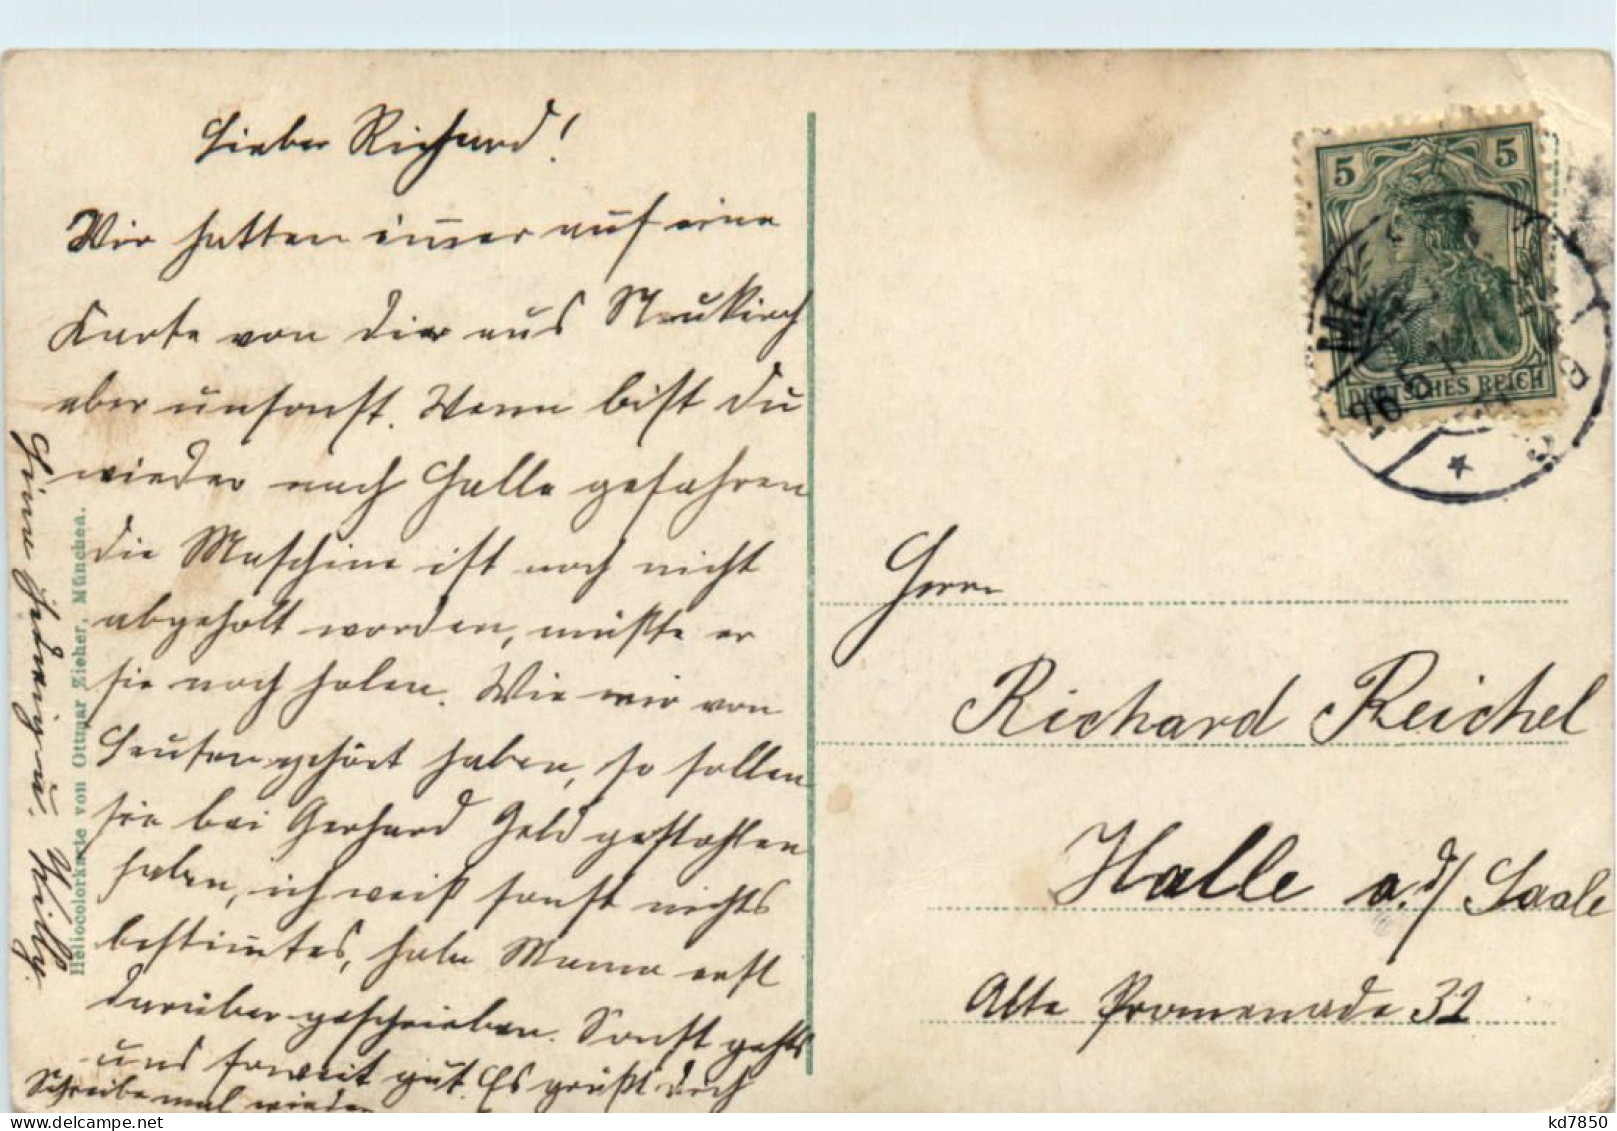 Lieber Richard!
Wir hatten im̅er auf eine
Karte von Dir aus Neukirch
aber umsonst. Wann bist Du
wieder nach Halle gefahren
die Maschine ist noch nicht
abgeholt worden, müßte er
sie noch holen. Wie wir von
Leuten gehört haben, so sollen
sie bei Gerhard Geld gestohlen
haben, ich weiß sonst nichts
bestim̅tes, habe Mama erst
darüber geschrieben. Sonst gehts
uns soweit gut. Es grüßt Dich
Schreibe mal wieder
Deine Hedwig u. Willy.
Heliocolorkarte von Ottmar Zieher, München.
5 5
DEUTSCHES REICH
26.5.1
Herrn
Richard Reichel
Halle a.d/Saale
Alte Promenade 32
kd7850